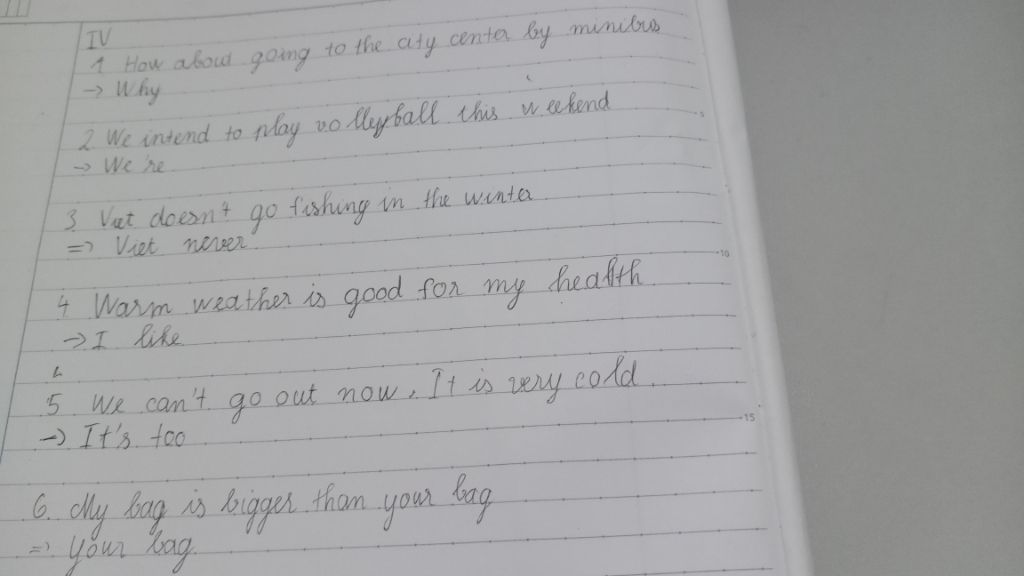 IV
1 How about going to the city center by minibus
→ Why
2 We intend to play volleyball this weekend
→ We're
3 Viet doesn't go fishing in the winter
=> Viet never
4 Warm weather is good for my health
→ I like
5 We can't go out now, It is very cold
→ It's too
6. My bag is bigger than your bag
=> Your bag